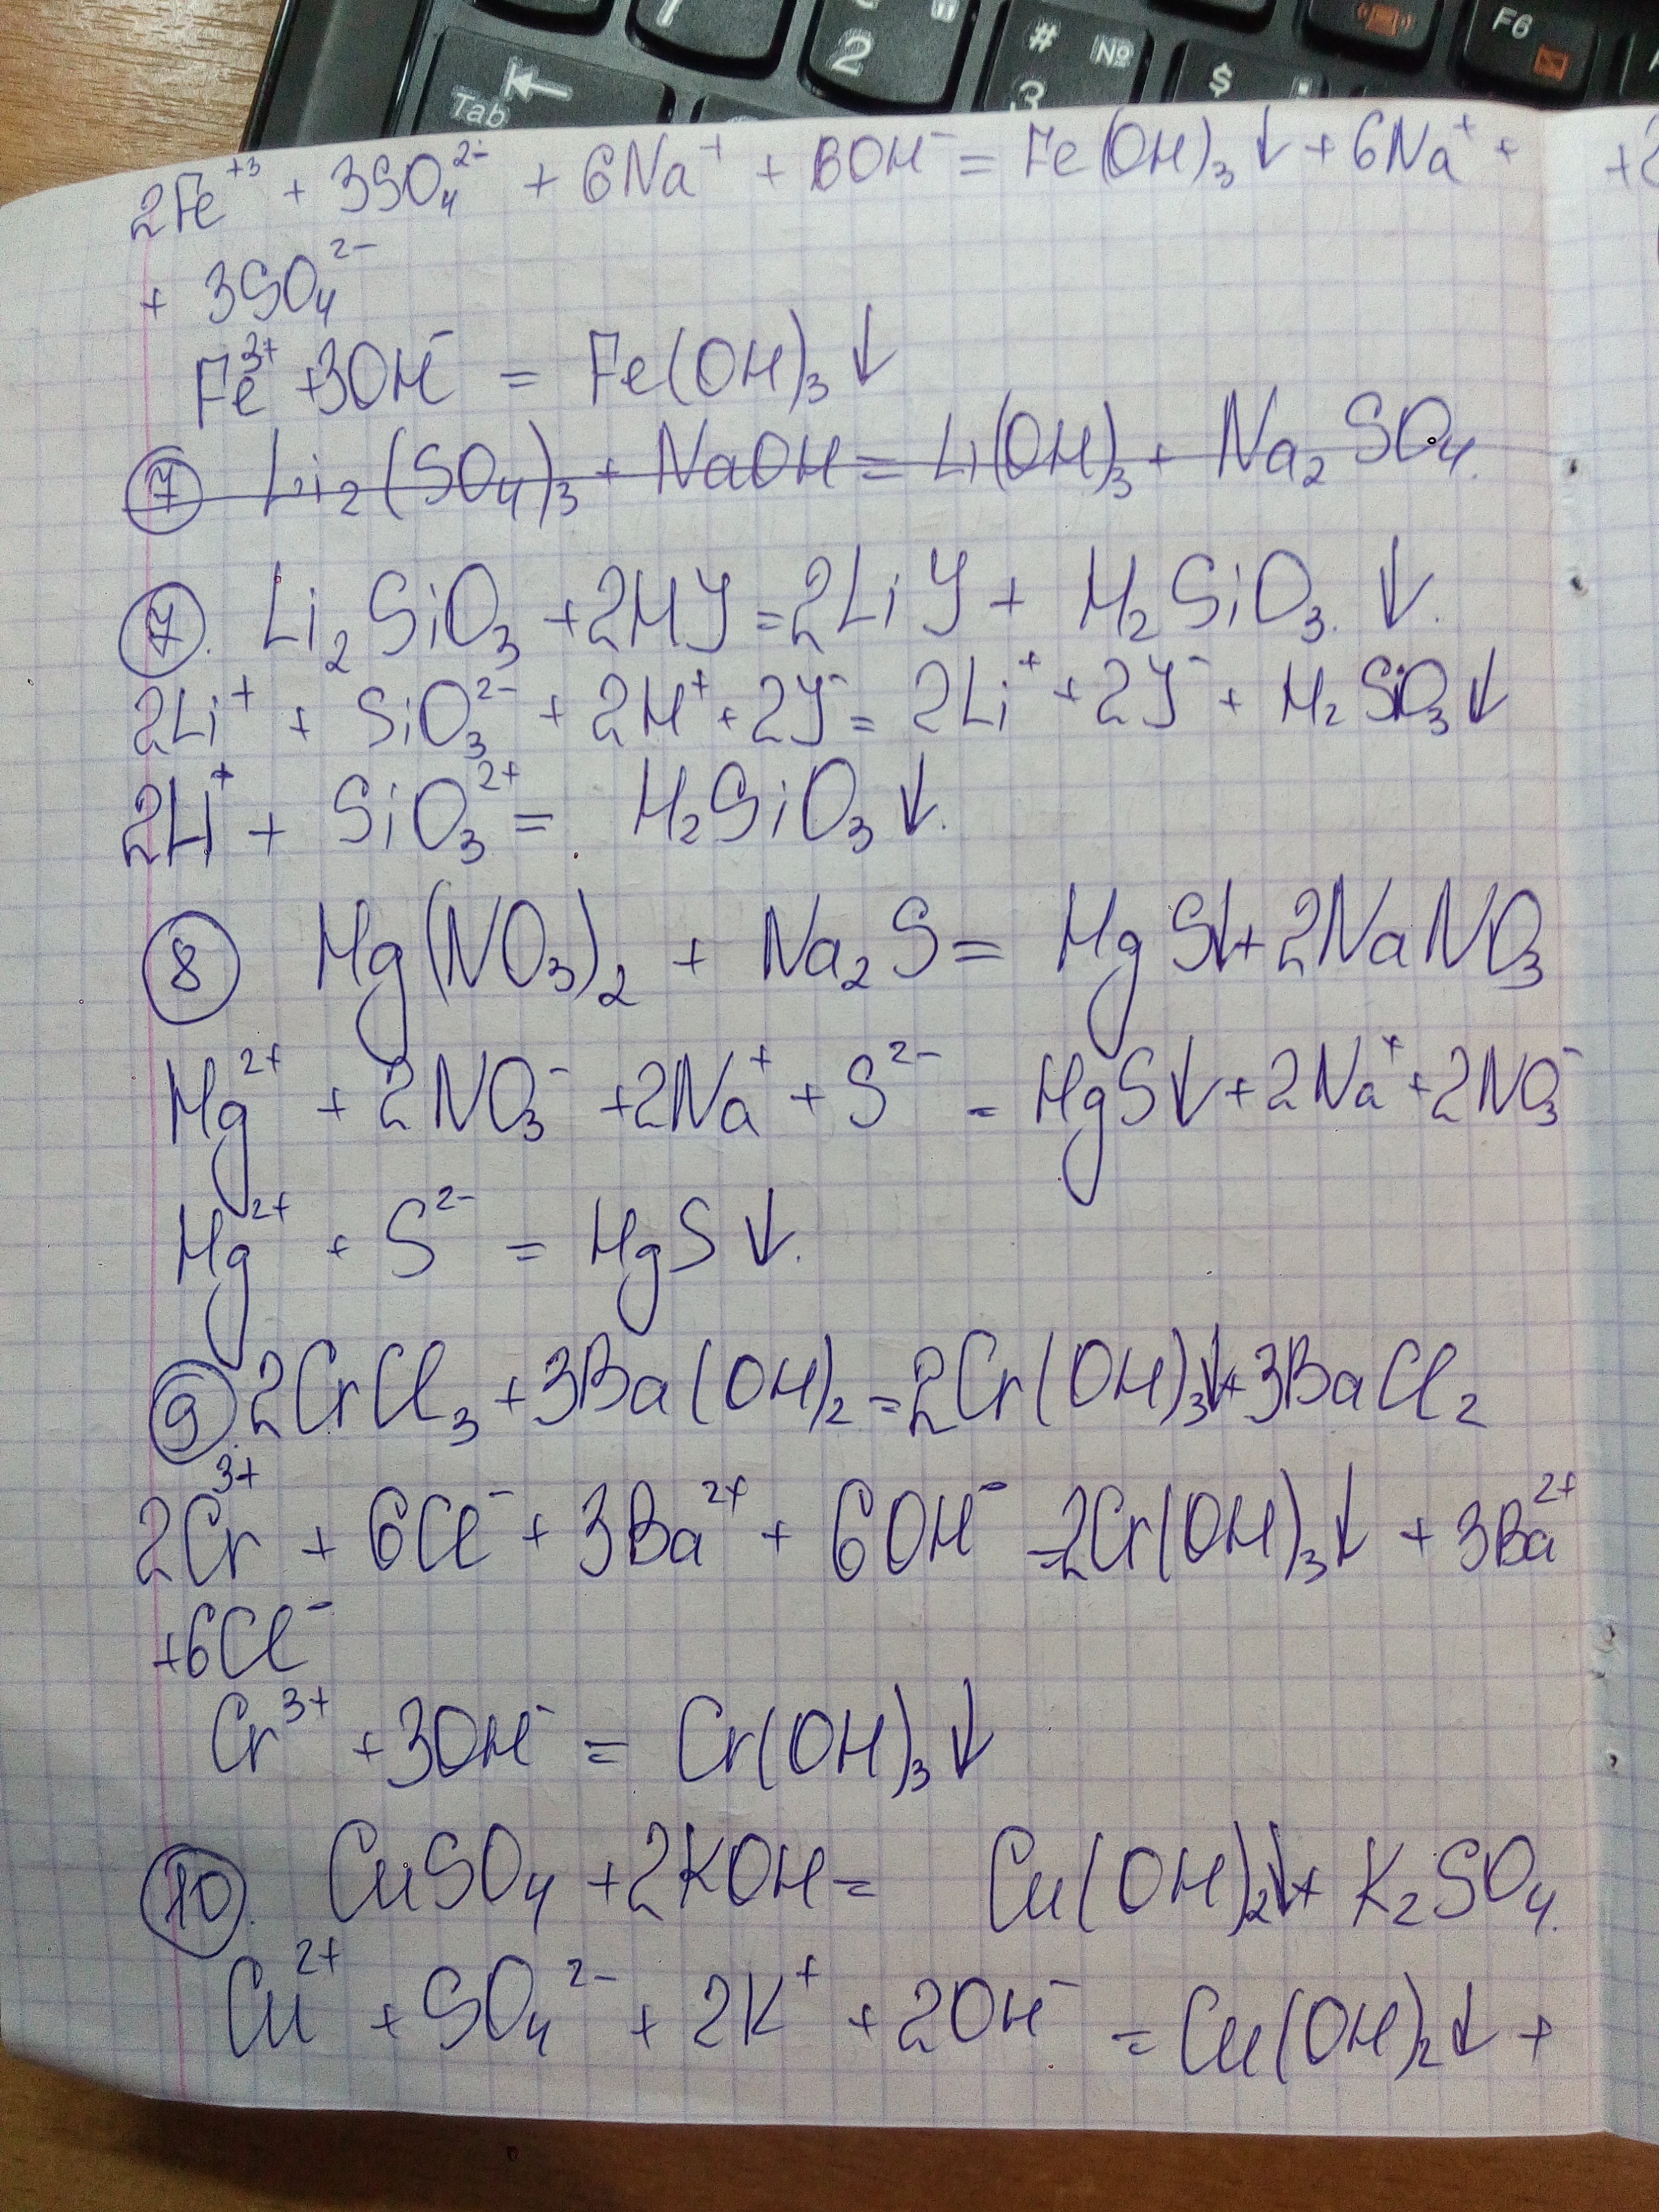 Tab
2
# №
3
$
F6
2Fe⁺³ + 3SO₄²⁻ + 6Na⁺ + 6OH⁻ = Fe(OH)₃↓ + 6Na⁺ +
+ 3SO₄²⁻
Fe³⁺ + 3OH⁻ = Fe(OH)₃↓
7 Li₂(SO₄)₃ + NaOH = Li(OH)₃ + Na₂SO₄.
7. Li₂SiO₃ + 2HJ = 2LiJ + H₂SiO₃.↓.
2Li⁺ + SiO₃²⁻ + 2H⁺ + 2J⁻ = 2Li⁺ + 2J⁻ + H₂SiO₃↓
2Li⁺ + SiO₃²⁺ = H₂SiO₃↓.
8 Hg(NO₃)₂ + Na₂S = HgS↓ + 2NaNO₃
Hg²⁺ + 2NO₃⁻ + 2Na⁺ + S²⁻ = HgS↓ + 2Na⁺ + 2NO₃⁻
Hg²⁺ + S²⁻ = HgS↓.
9. 2CrCl₃ + 3Ba(OH)₂ = 2Cr(OH)₃↓ + 3BaCl₂
2Cr³⁺ + 6Cl⁻ + 3Ba²⁺ + 6OH⁻ = 2Cr(OH)₃↓ + 3Ba²⁺
+ 6Cl⁻
Cr³⁺ + 3OH⁻ = Cr(OH)₃↓
10. CuSO₄ + 2KOH = Cu(OH)₂↓ + K₂SO₄.
Cu²⁺ + SO₄²⁻ + 2K⁺ + 2OH⁻ = Cu(OH)₂↓ +